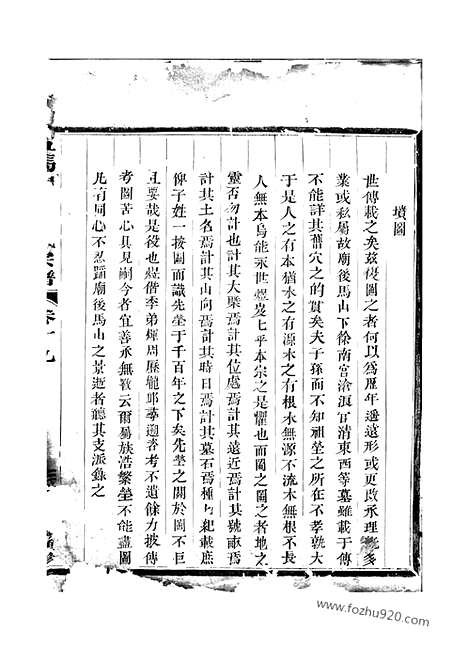 墳圖
世傳載之矣茲復圖之者何以爲歷年遞遠形或更改承理既多
業或私屬故廟後馬山下徐南宫滄浜官清東西等墓雖載于傳
不能詳其舊穴之的實矣夫子孫而不知祖塋之所在不孝孰大
于是人之有本猶木之有源水之有根水無源不流木無根不長
人無本烏能永世煜炱七乎本宗之是懼也而圖之圖之者地之
靈否勿計也計其大槩焉計其位處焉計其遠近焉計其號畝焉
計其土名焉計其山向焉計其時日焉計其墓石焉種種紀載庶
俾子姓一按圖而識先塋于千百年之下矣先塋之關於圖不巨
且要哉是役也緹偕季弟煇周歷龍邱尋遡考不遺餘力披傳
考圖苦心具見嗣今者宜善承無斁云爾易族浩繁塋不能盡圖
凡有同心不忍蹈廟後馬山之景逝者聽其支派錄之
宗譜
卷十九
www.fozhu920.com